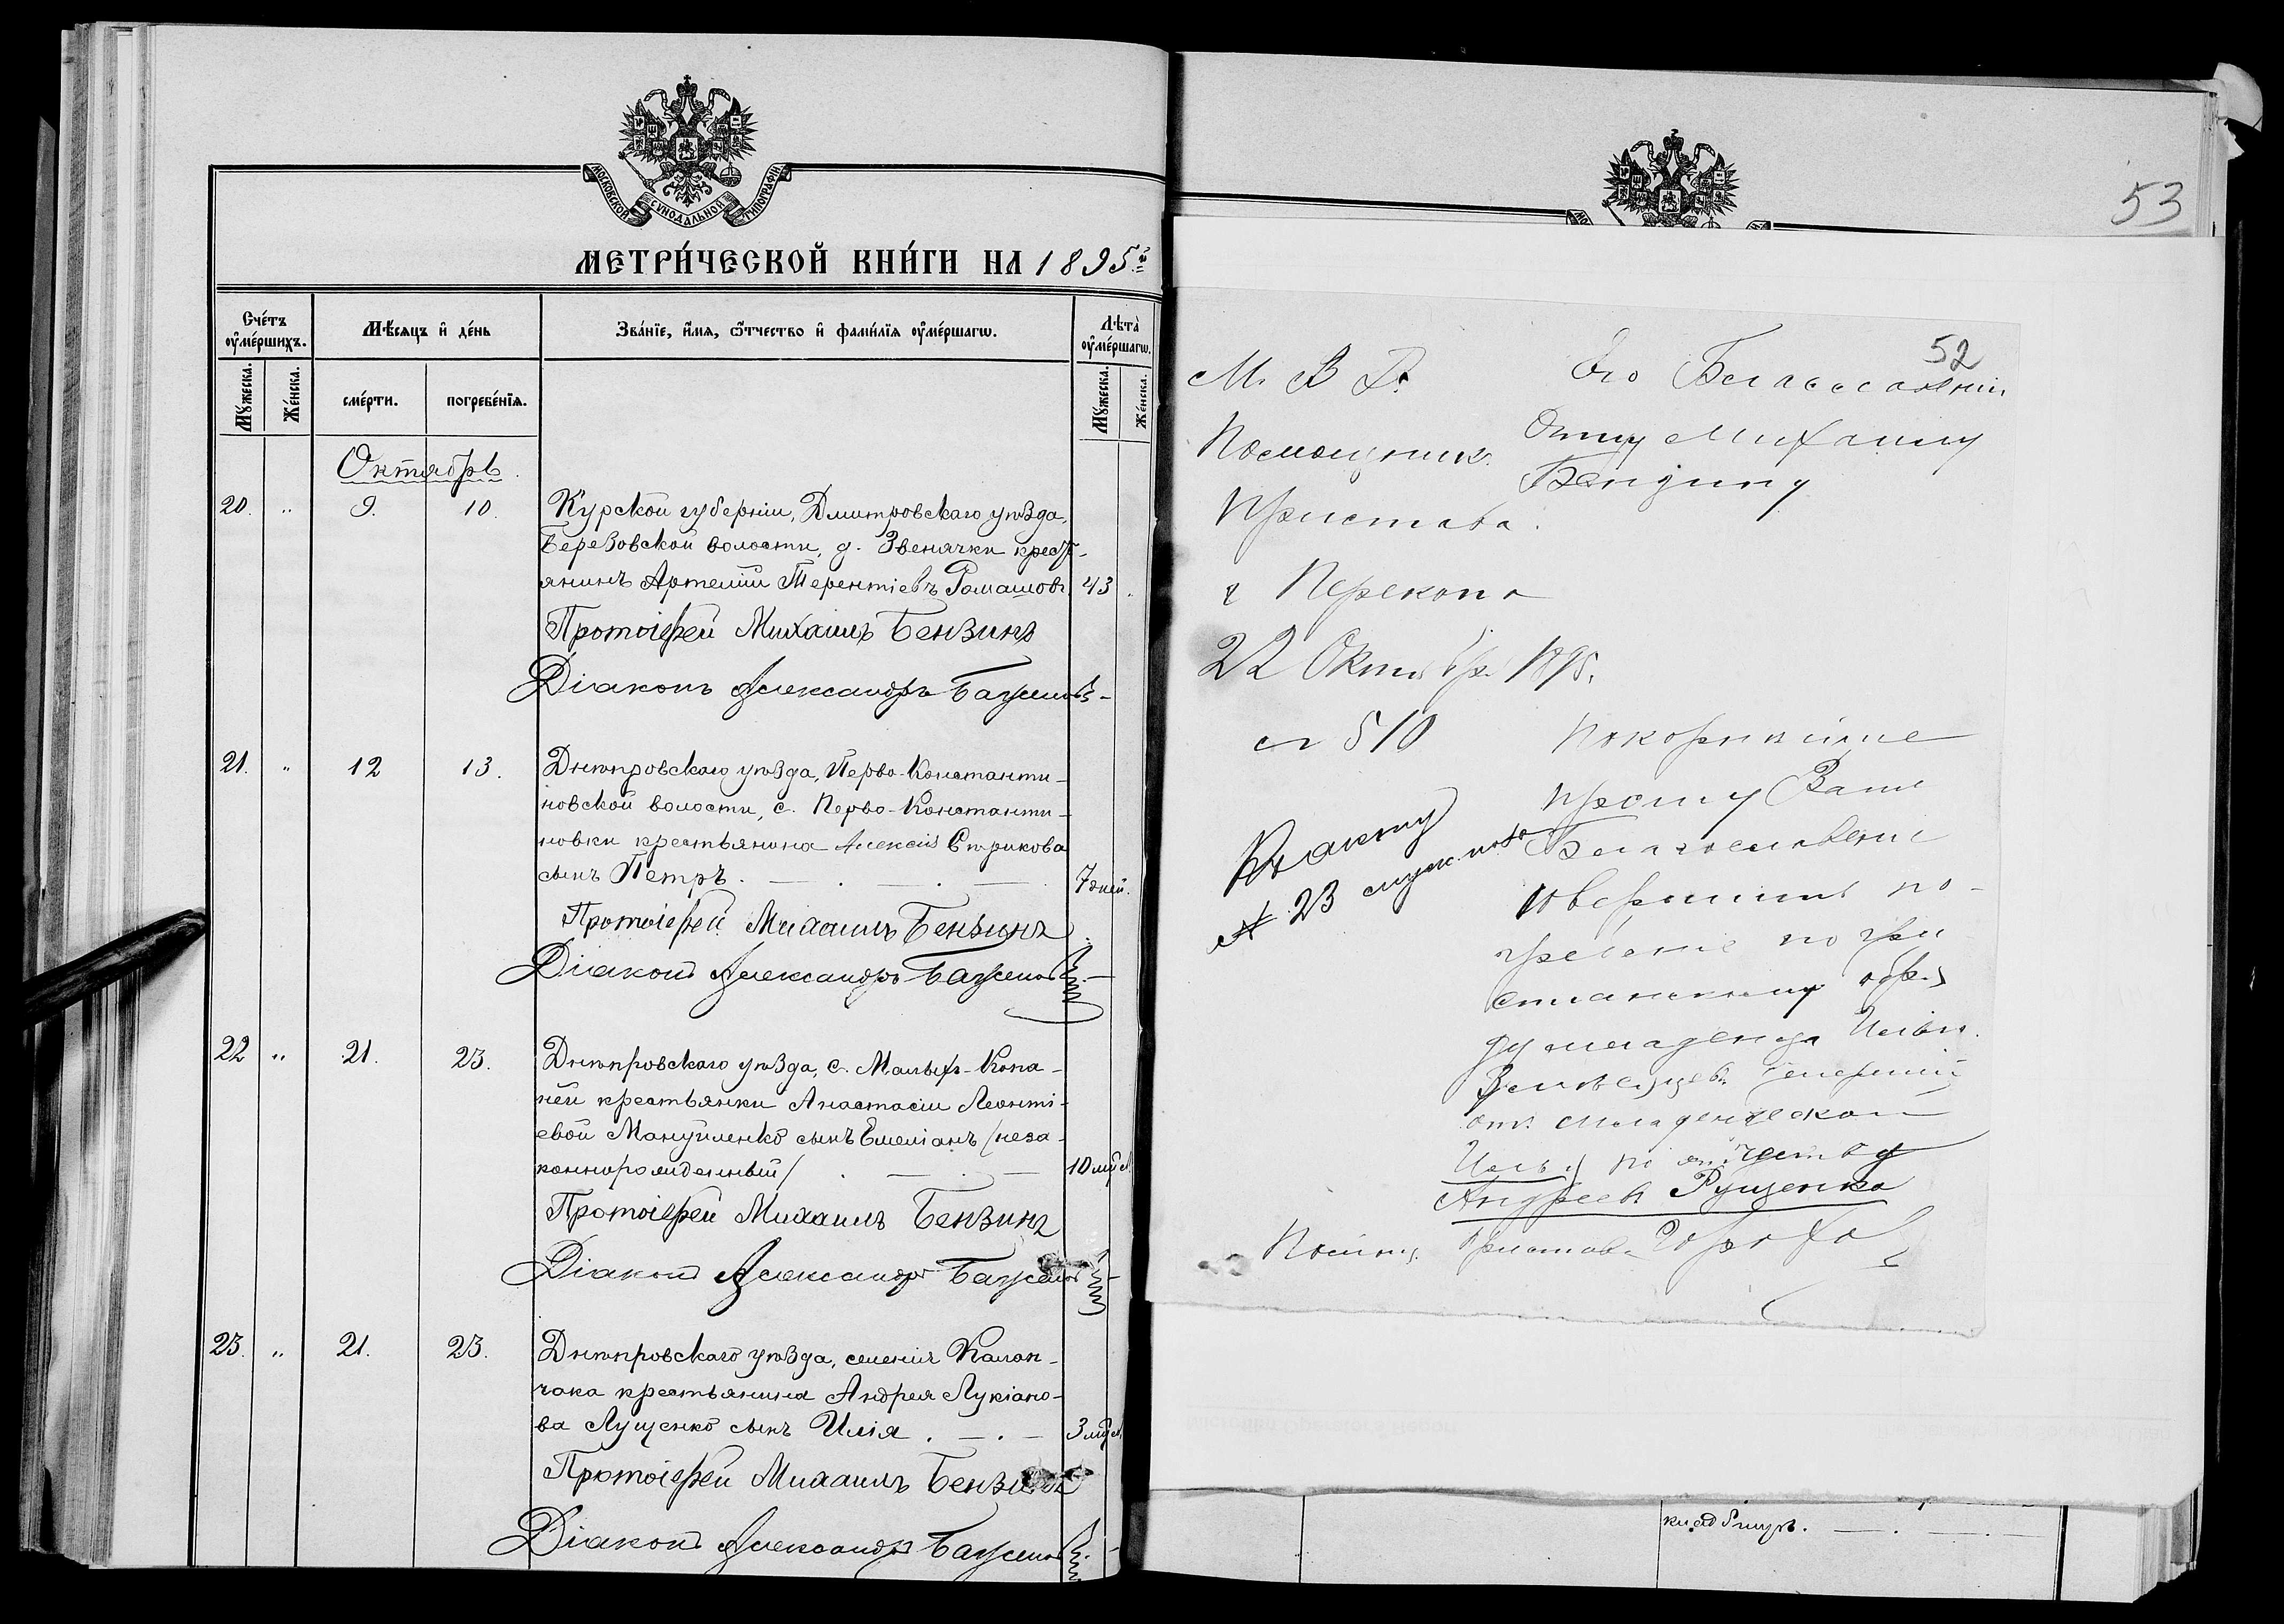 МОСКОВСКОЙ СѴНОДАЛЬНОЙ ТИПОГРАФІИ
МЕТРИ́ЧЕСКОЙ КНИ́ГИ НА 1895й
Сче́тъ оу҆ме́ршихъ.
Мѣ́сяцъ и҆ де́нь
Зва́нїе, и҆́мя, ѻ҆́тчество и҆ фами́лїя оу҆ме́ршагѡ.
Лѣта̀ оу҆ме́ршагѡ.
Мꙋ́жеска.
Же́нска.
сме́рти.
погребе́нїя.
Мꙋ́жеска.
Же́нска.
Октябрь.
20. " 9. 10. Курской губерніи, Дмитровскаго уѣзда,
Березовской волости, д. Звенячки крест-
янинъ Артемій Терентіевъ Ромашовъ 43
Протоіерей Михаилъ Бензинъ
Діаконъ Александръ Баженовъ
21. " 12 13. Днѣпровскаго уѣзда, Перво-Константи-
новской волости, с. Перво-Константи-
новки крестьянина Алексія Стрикова
сынъ Петръ. 7 дней.
Протоіерей Михаилъ Бензинъ
Діаконъ Александръ Баженовъ
22 " 21. 23. Днѣпровскаго уѣзда, с. Малыхъ-Копа-
ней крестьянки Анастасіи Леонті-
евой Мануйленко сынъ Емеліанъ (неза-
коннорожденный) 10
Протоіерей Михаилъ Бензинъ
Діаконъ Александръ Баженовъ
23. " 21. 23. Днѣпровскаго уѣзда, селенія Калан-
чака крестьянина Андрея Лукіано-
ва Лущенко сынъ Илія. 3
Протоіерей Михаилъ Бензинъ
Діаконъ Александръ Баженовъ
53
52
М. В. Д.
Помощник
Пристава.
г Перекопа
22 Октябр. 1895.
№ 510
Къ акту
№ 23 мужск. пола
Его Благословенію
Отцу Михаилу
Бензину
Покорнейше
прошу Ваше
Благословение
совершить по-
гребение по хри
стианскому обря
ду младенца Ильи
от младенческой
Илья по отчеству
Андреев Рущенко
Помощ. Пристава